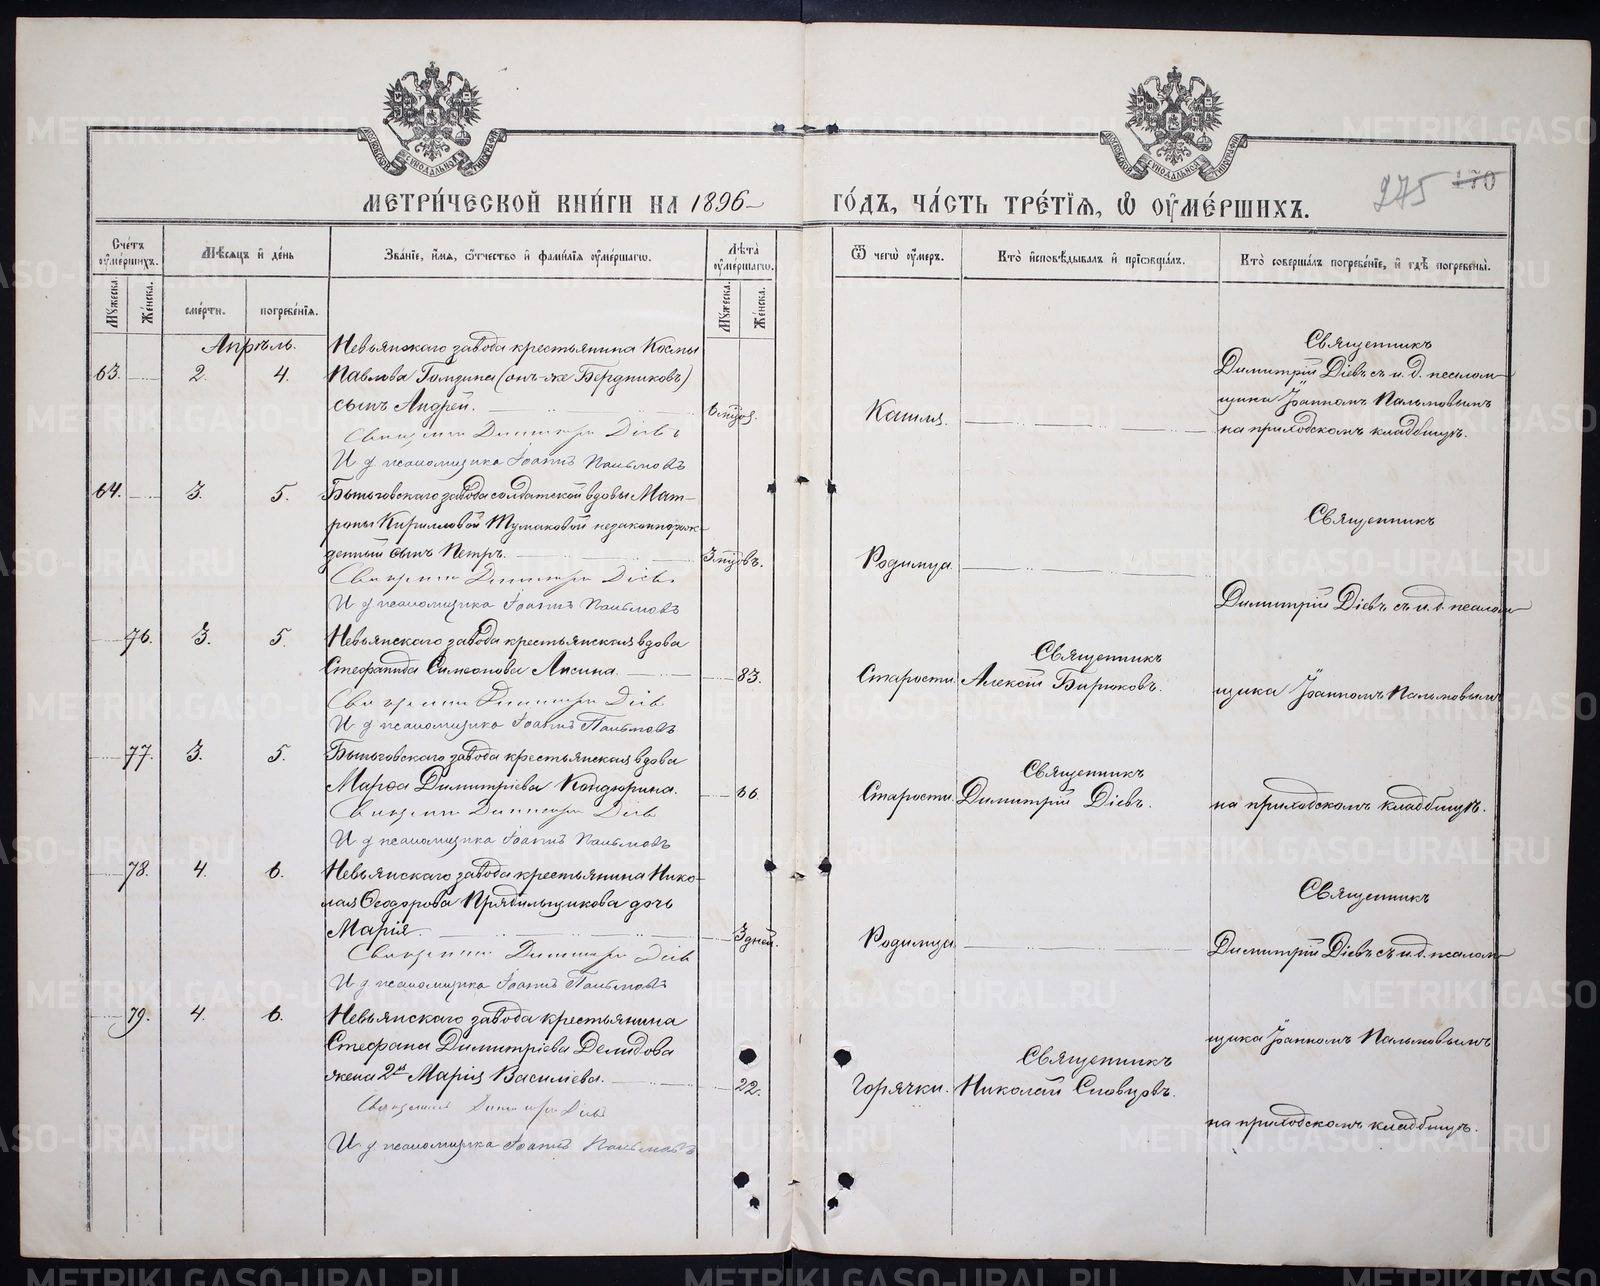 МЕТРИЧЕСКОЙ КНИГИ НА 1896 ГОДЪ, ЧАСТЬ ТРЕТІЯ, Ѡ ОУМЕРШИХЪ.
275 170
Счетъ оумершихъ.
Мѣсяцъ и день
Званіе, имя, ѻтчество и фамиліа оумершагѡ.
Лѣта оумершагѡ.
Ѿ чегѡ оумеръ.
Кто исповѣдывалъ и пріѡбщалъ.
Кто совершалъ погребеніе, и гдѣ погребены.
Мужеска. Женска.
смерти. погребенія.
Мужеска. Женска.
Апрѣль.
Невьянскаго завода крестьянина Космы
63. 2. 4. Павлова Гамзина (онъ-же Бердниковъ)
сынъ Андрей. 6 мцов. Кашля.
Священникъ
Димитрій Діевъ съ и. д. псалом-
щика Іоанномъ Пальмовымъ
на приходскомъ кладбищѣ.
Священникъ Димитрій Діевъ
И д псаломщика Іоаннъ Пальмовъ
64. 3. 5. Быньговскаго завода солдатской вдовы Мат-
роны Кирилловой Тумаковой незаконнорож-
денный сынъ Петръ. 3 мцовъ. Родимца
Священникъ Димитрій Діевъ
И д псаломщика Іоаннъ Пальмовъ
Священникъ
Димитрій Діевъ съ и. д. псалом-
76. 3. 5. Невьянскаго завода крестьянская вдова
Стефанида Симеонова Лисина. 83. Старости. Священникъ
Алексій Бирюковъ.
щика Іоанномъ Пальмовымъ
Священникъ Димитрій Діевъ
И д псаломщика Іоаннъ Пальмовъ
77. 3. 5. Быньговскаго завода крестьянская вдова
Марѳа Димитріева Кондюрина. 66. Старости. Священникъ
Димитрій Діевъ.
на приходскомъ кладбищѣ.
Священникъ Димитрій Діевъ
И д псаломщика Іоаннъ Пальмовъ
78. 4. 6. Невьянскаго завода крестьянина Нико-
лая Ѳеодорова Прядильщикова дочь
Марія. 3 дней. Родимца
Священникъ
Димитрій Діевъ съ и. д. псалом-
Священникъ Димитрій Діевъ
И д псаломщика Іоаннъ Пальмовъ
79. 4. 6. Невьянскаго завода крестьянина
Стефана Димитріева Демидова
жена 2ая Марія Василіева. 22. Горячки. Священникъ
Николай Словцовъ.
щика Іоанномъ Пальмовымъ
на приходскомъ кладбищѣ.
Священникъ Димитрій Діевъ
И д псаломщика Іоаннъ Пальмовъ
METRIKI.GASO-URAL.RU